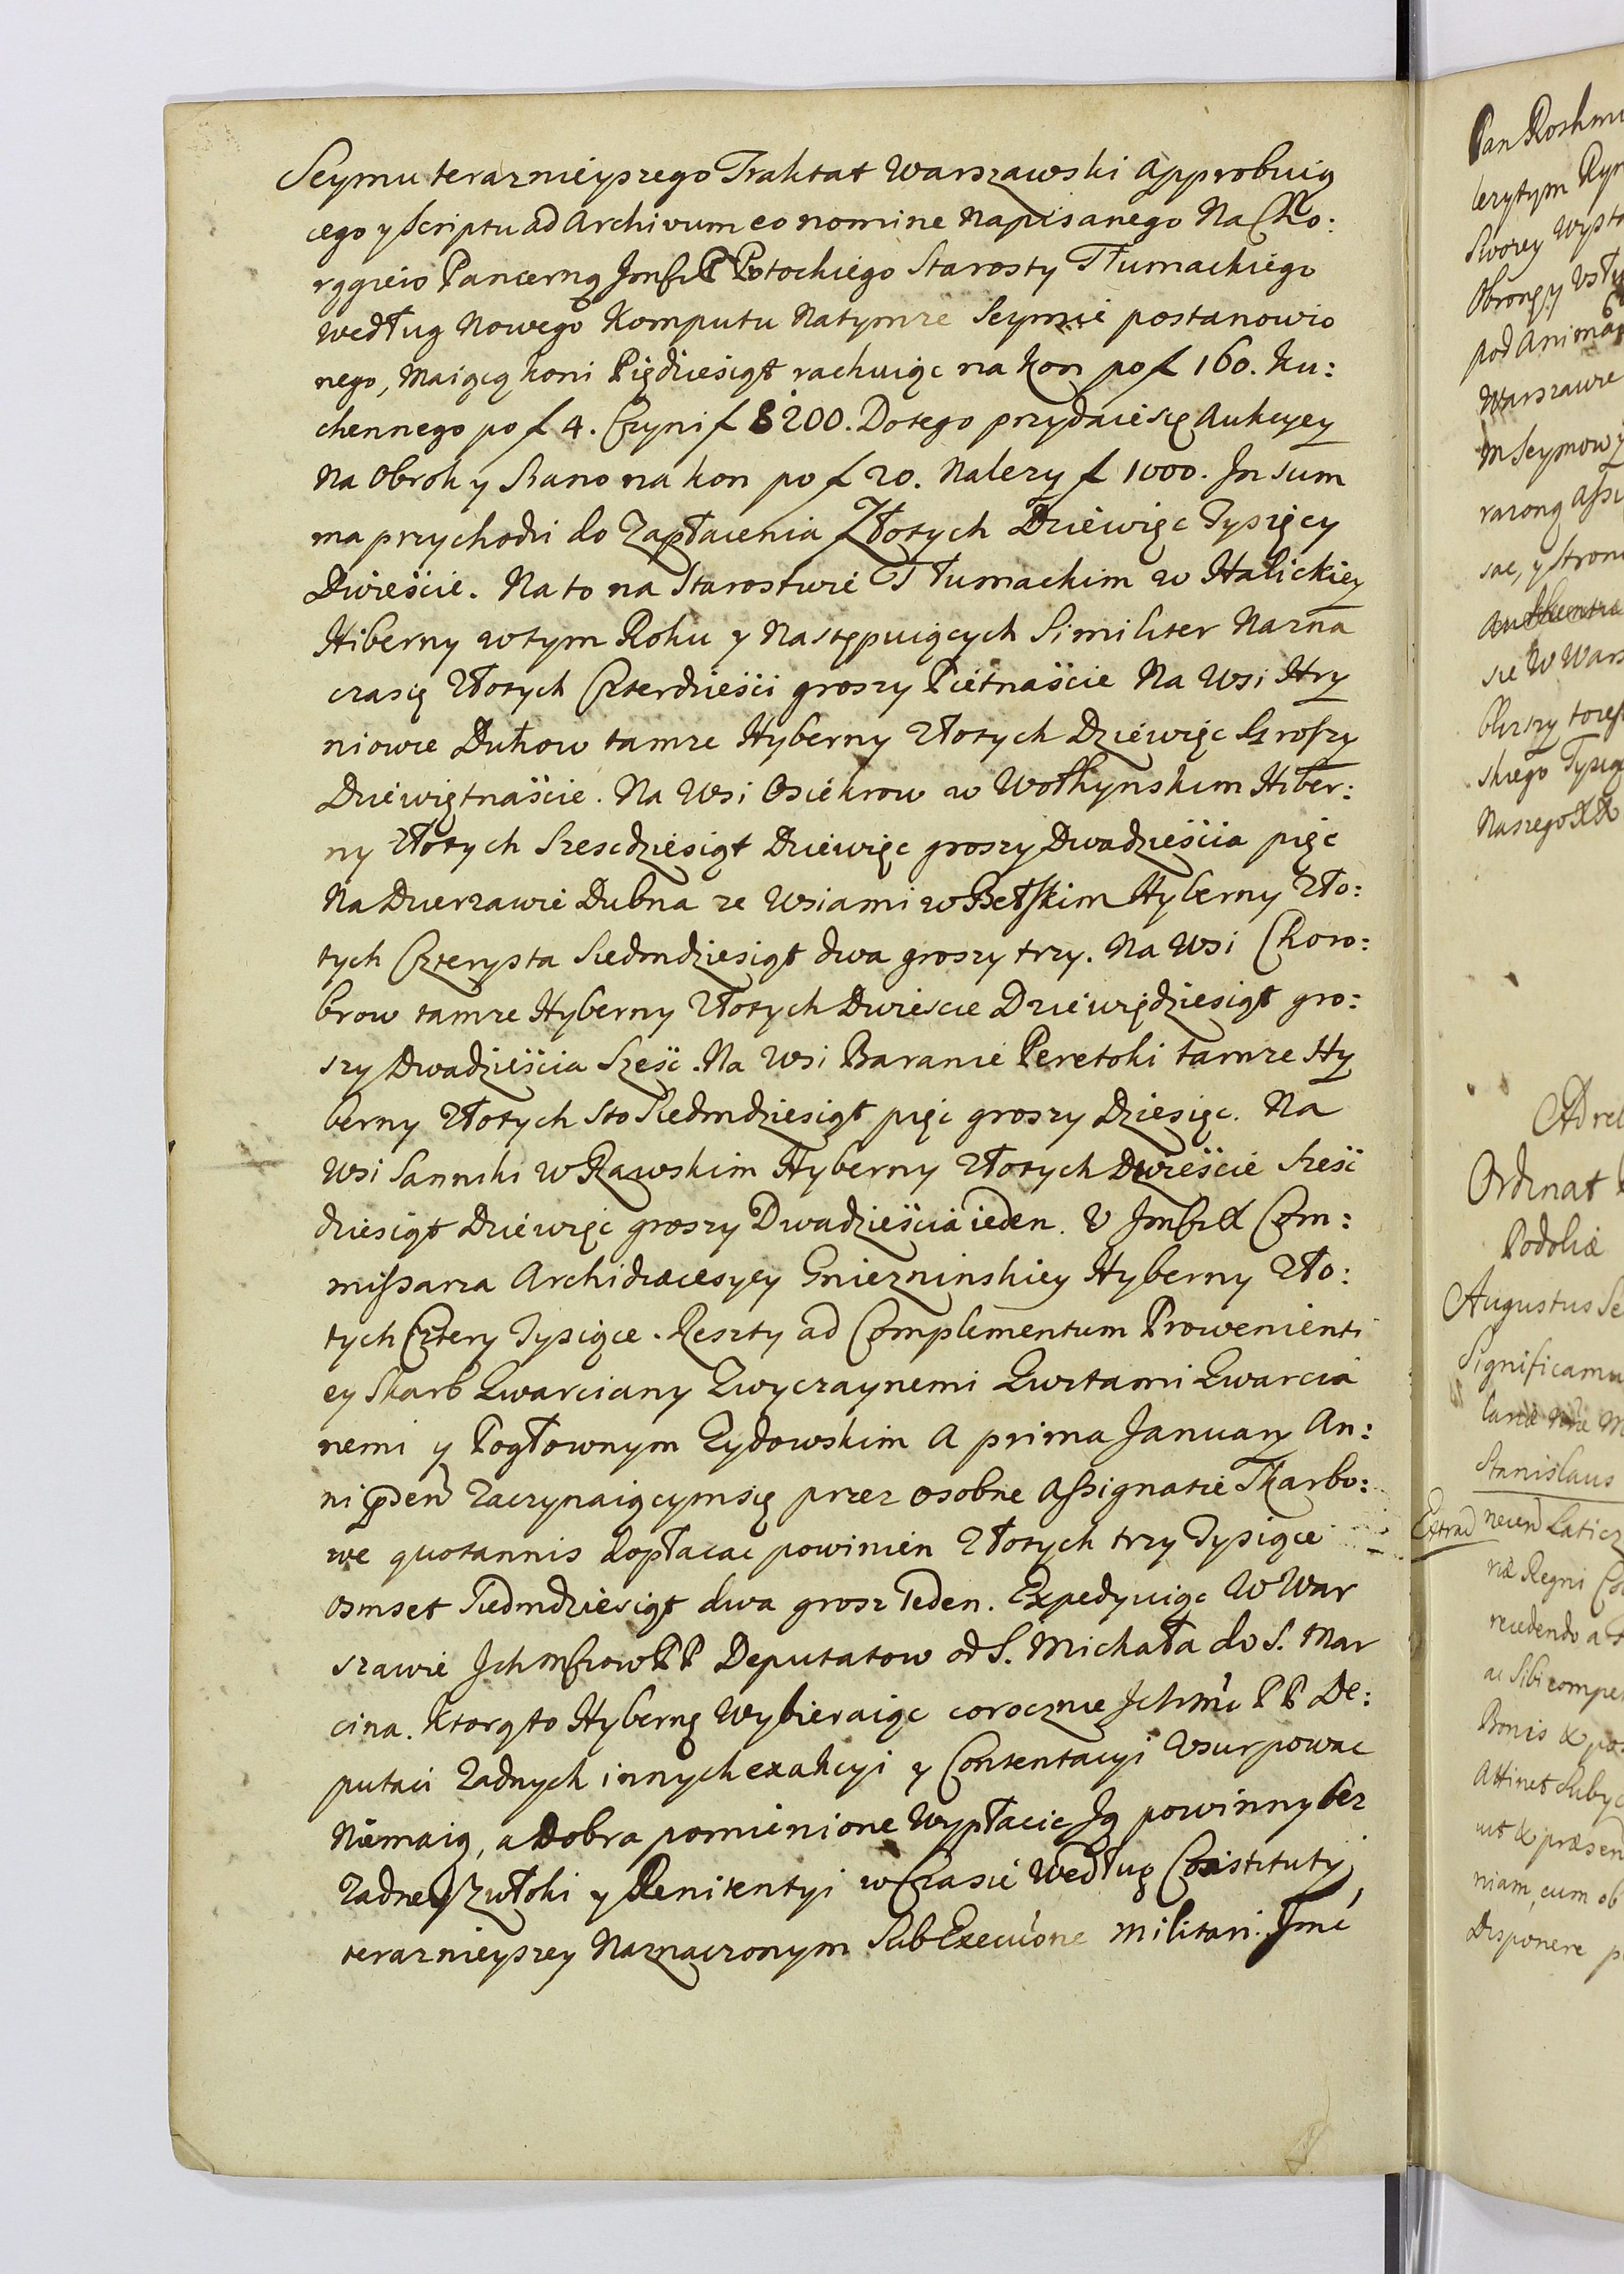 Seymu teraznieyszego Traktat Warszawski Approbuią
cego y Scriptu ad Archivum eo nomine Napisanego Na Cho:
rągieio Pancerną Jmści P Potockiego Starosty Tłumackiego
według Nowego Komputu Natymze Seymie postanowio
nego, Maiącą koni Pięćdziesiąt rachuiąc na kon po f 160. Ku:
chennego po f 4. Czyni f 8200. Do tego przydaie się Aukcyey
Na Obrok y Siano na kon po f 20. Nalezy f 1000. In Sum
ma przychodzi do Zapłacenia Złotych Dziewięc Tysięcy
Dwieście. Na to na Starostwie Tłumackim w Halickiey
Hiberny wtym Roku y Następuiących Similiter Nazna
cza się Złotych Czterdzieści groszy Pietnaście Na Wsi Hry
niowce Dukow tamze Hyberny Złotych Dziewięc Groszy
Dziewiętnaście. Na Wsi Osiekrow w Wołhynskim Hiber:
ny Złotych Szescdziesiąt Dziewięc groszy Dwadzieścia pięc
Na Dzierzawie Dubna ze Wsiami w Bełskim Hyberny Zło:
tych Czterysta Siedmdziesiąt dwa groszy trzy. Na Wsi Choro:
brow tamze Hyberny Złotych Dwiescie Dziewiędziesiąt gro:
szy Dwadzieścia Sześć. Na Wsi Baranie Peretoki tamze Hy
berny Złotych Sto Siedmdziesiąt pięc groszy Dziesięc. Na
Wsi Sanniki w Rawskim Hyberny Złotych Dwieście Sześć
dziesiąt Dziewięc groszy Dwadzieścia ieden. U Jmści X Com:
missarza Archidiaecesyey Gnieznińskiey Hyberny Zło:
tych Cztery Tysiące. Reszty ad Complementum Prowenienti
ey Skarb Kwarciany Zwyczaynemi Kwitami Kwarcia
nemi y Pogłownym Zydowskim A prima January An:
ni Zaczynaiącym się przez osobne Assignatie Skarbo:
we quotannis dopłacac powinien Złotych trzy Tysiące
osmset Siedmdziesiąt dwa grosz Ieden. Expedyuiąc W War
szawie Ichmściow PP Deputatow od S. Michała do S. Mar
cina. Ktorą to Hybernę Wybieraiąc corocznie Ichmć PP De:
putaci Zadnych innych exakcyi y Contentacyi Usurpowac
Niemaią, a Dobra pomienione Wypłacic Ją powinny bez
Zadney Zwłoki y Renitentyi w Czasie Według Constituty
teraznieyszey Naznaczonym Sub Executione Militari. Jmć